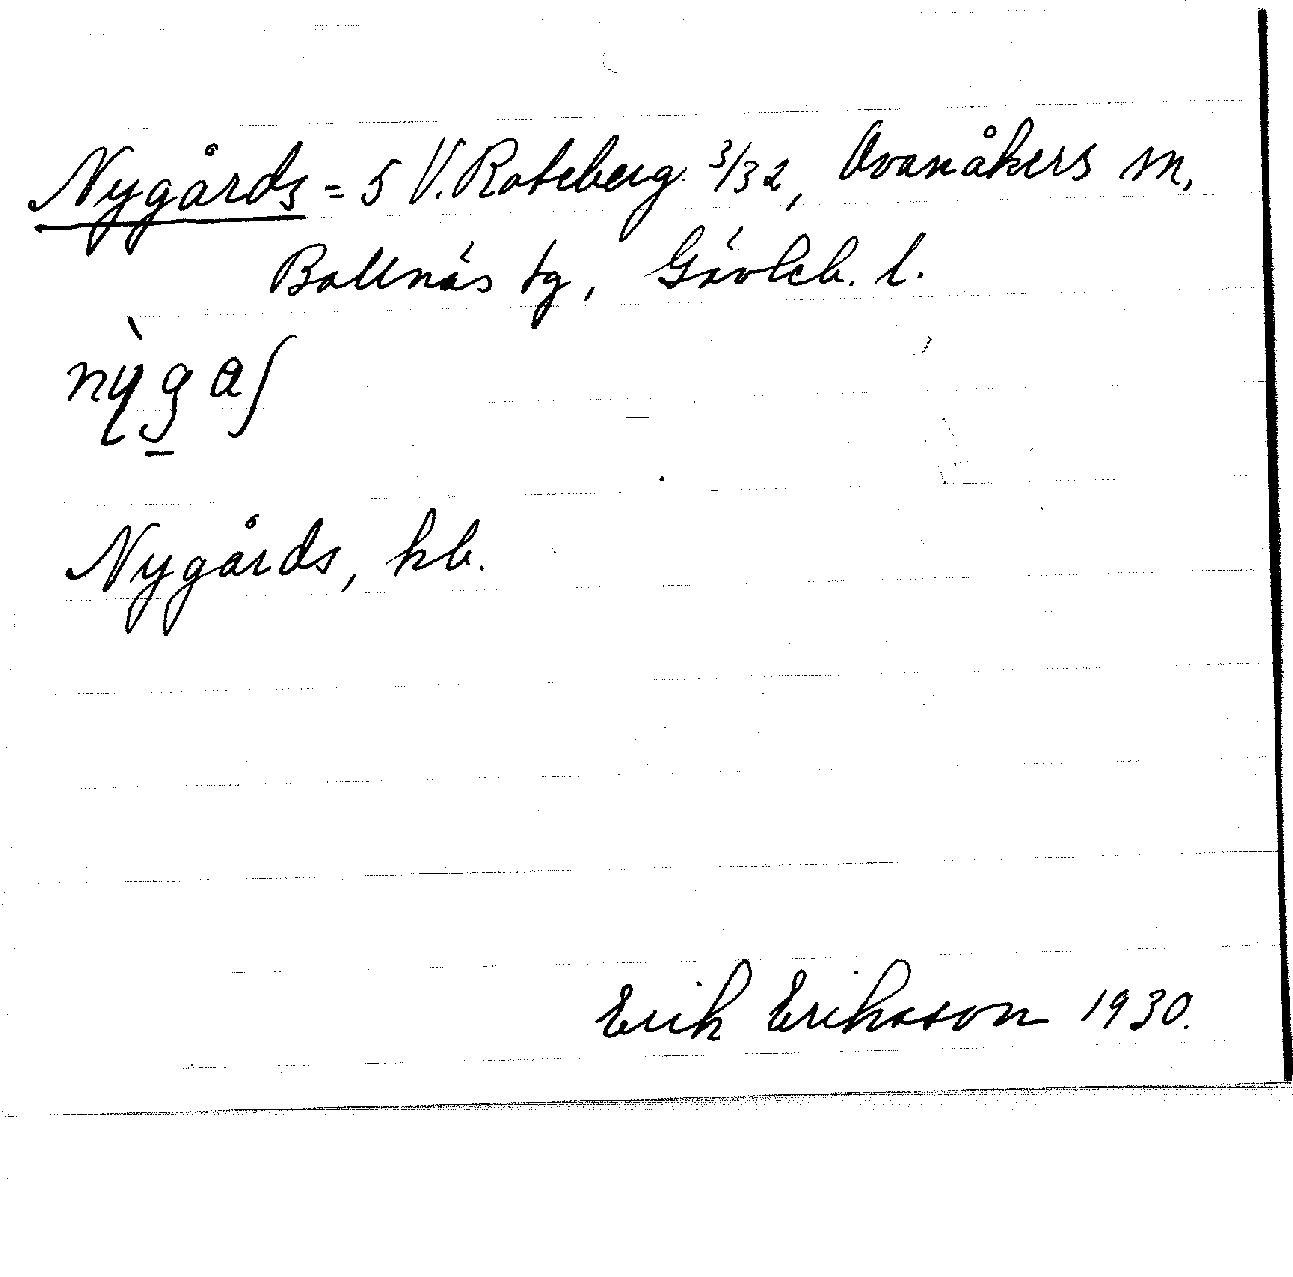 Nygårds = 5 V. Roteberg 3/32, Ovanåkers sn,
Bollnäs tg, Gävleb. l.
Nygårds, kb.
Erik Eriksson 1930.